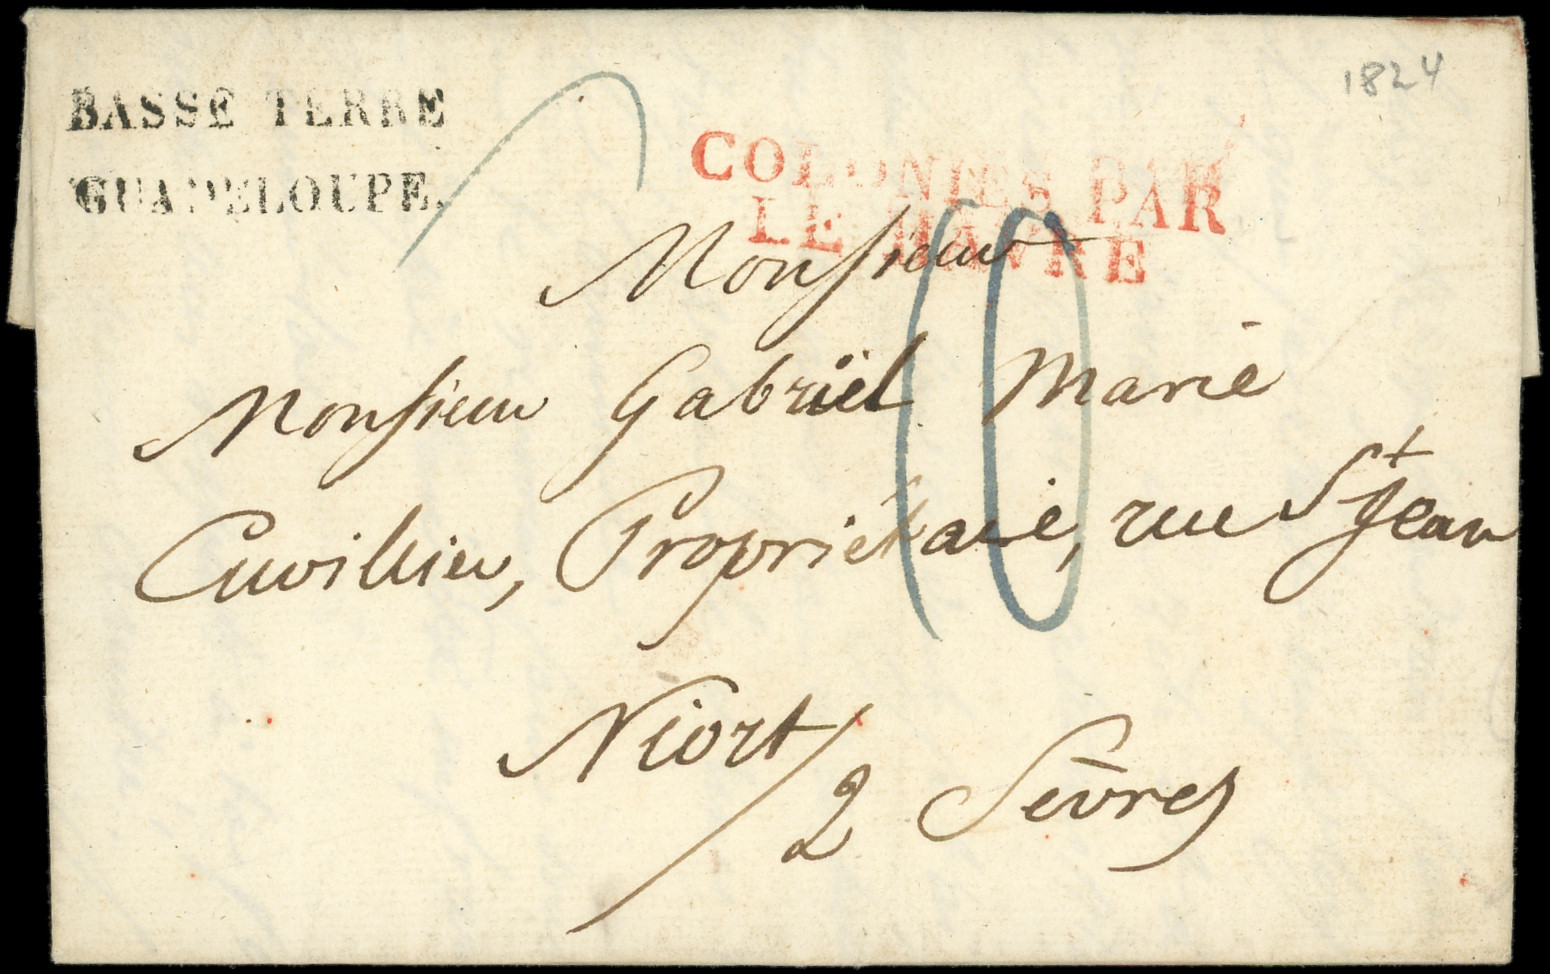 1824
BASSE TERRE
GUADELOUPE.
COLONIES PAR
LE HAVRE
10
Monsieur
Monsieur Gabriel Marie
Cuvillier, Propriétaire, rue St Jean
Niort
2 Sèvres